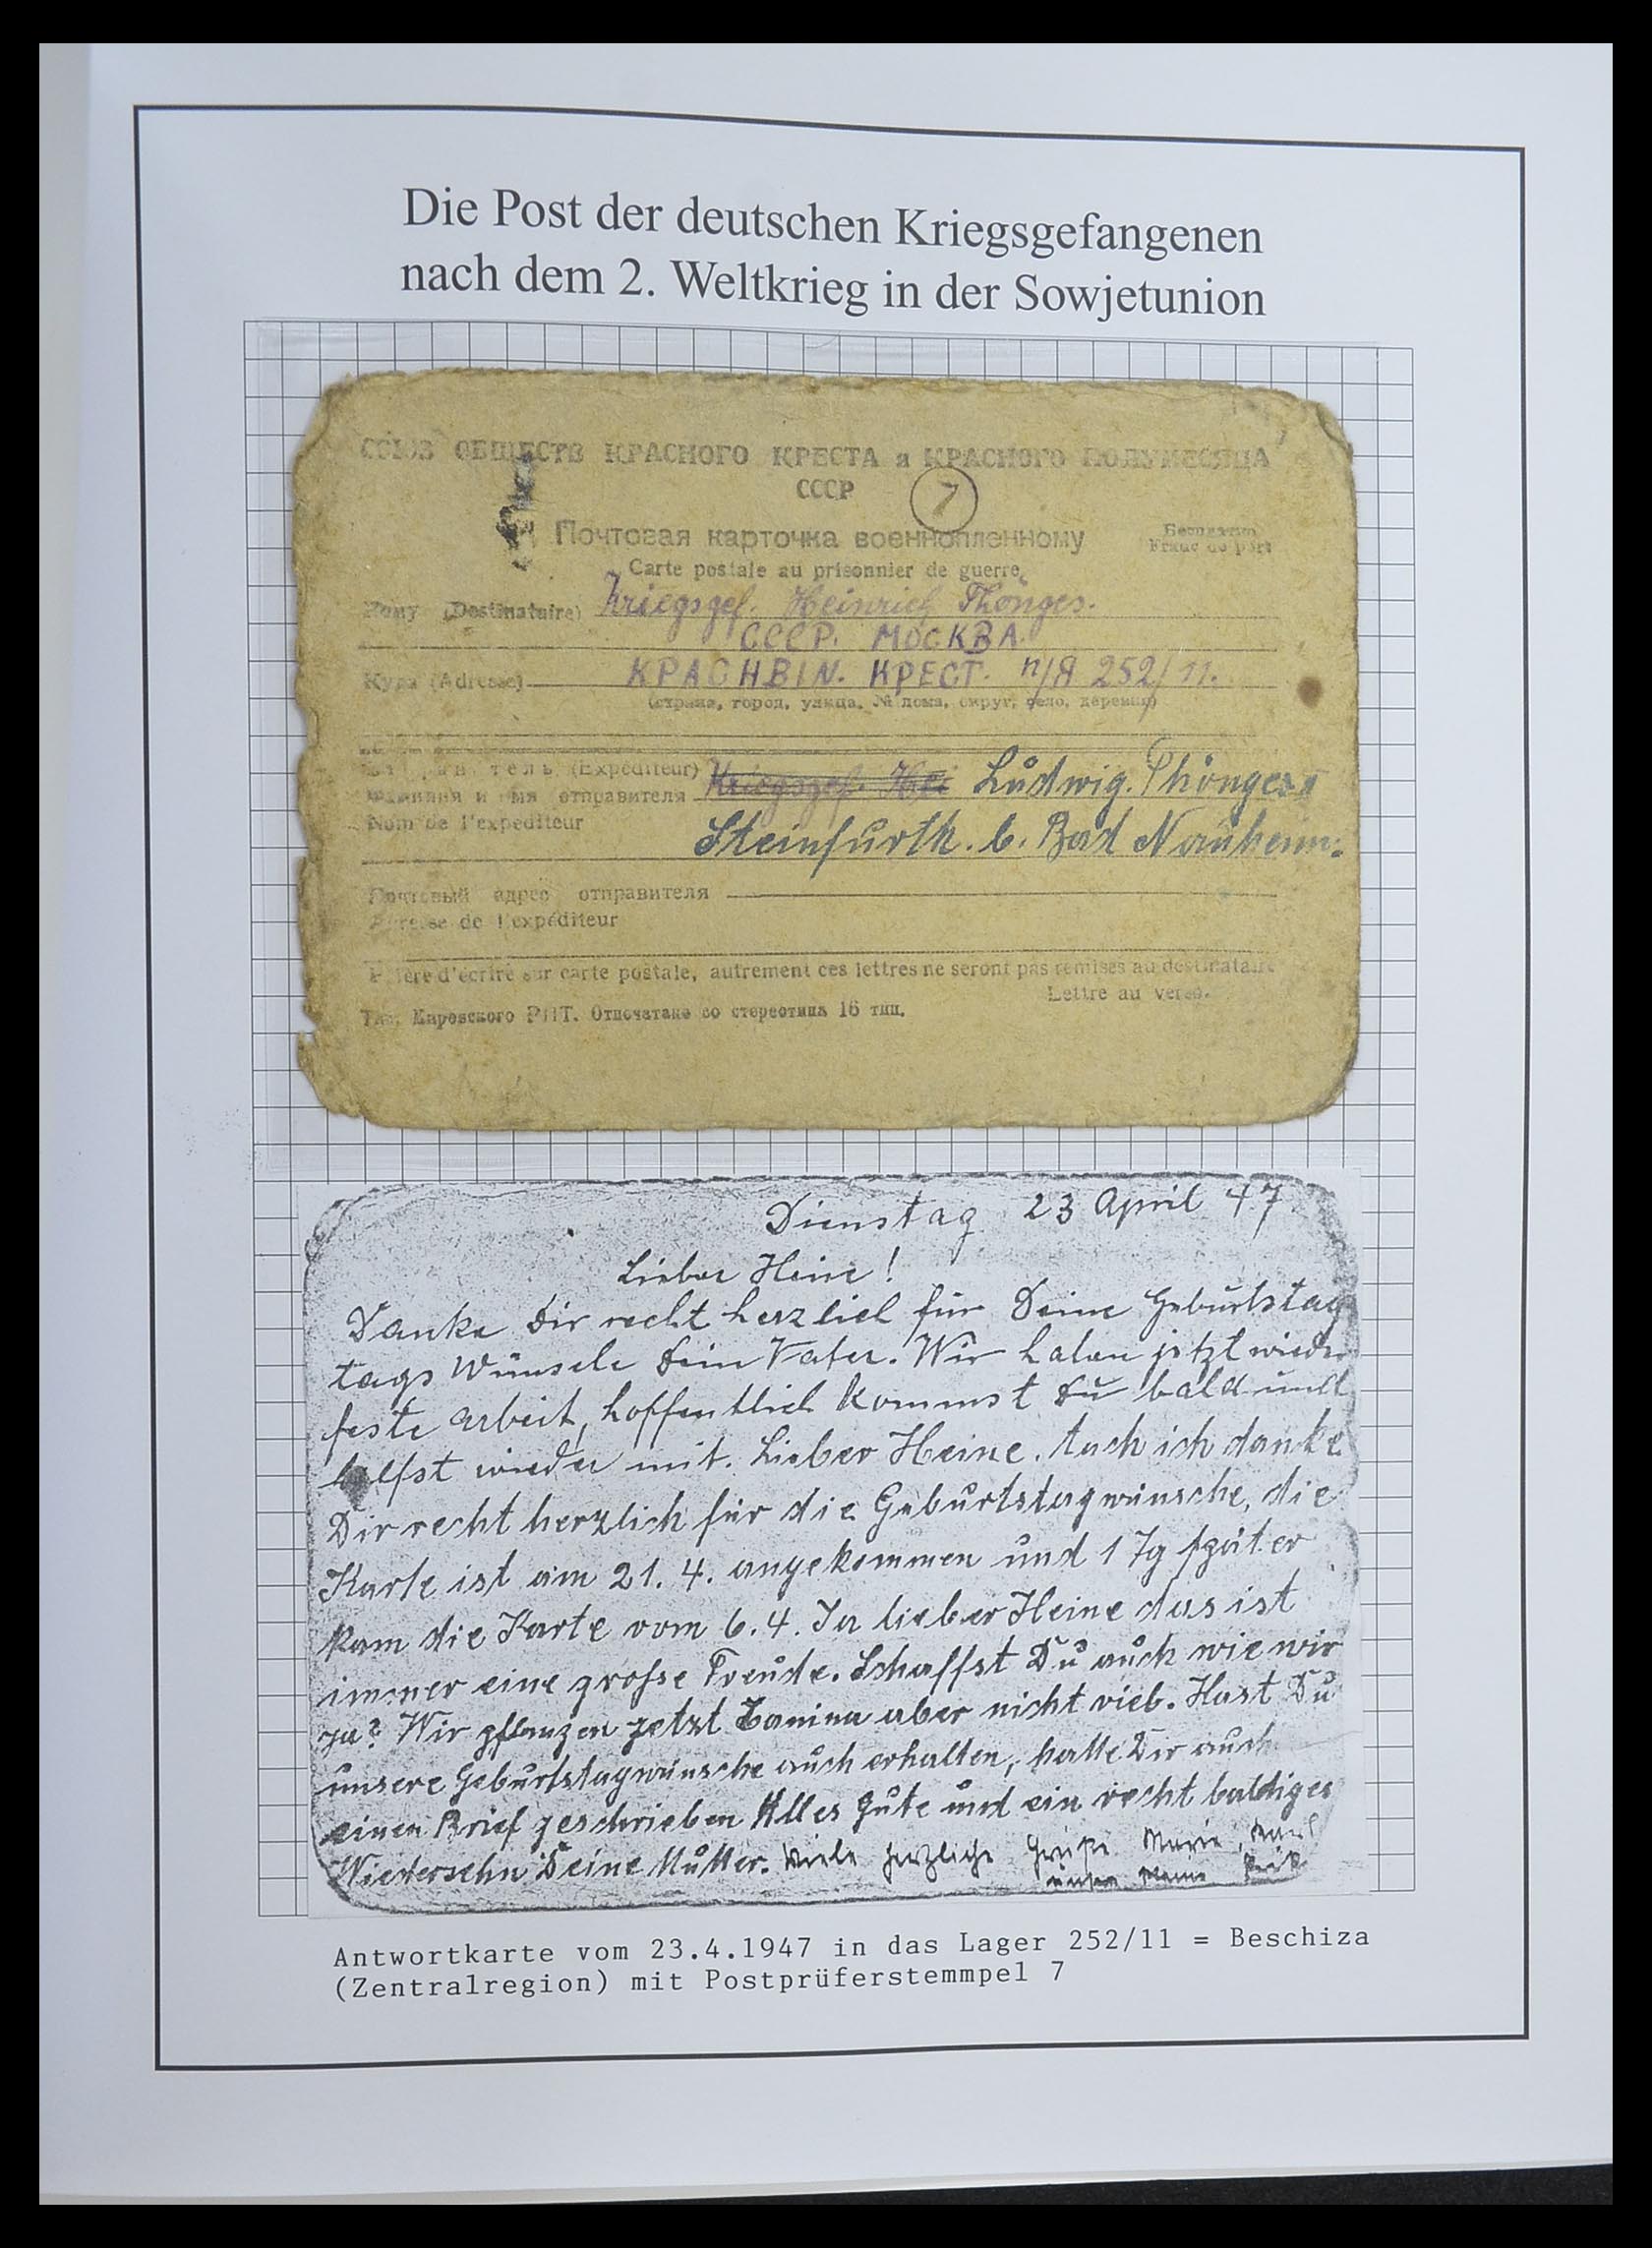 Die Post der deutschen Kriegsgefangenen
nach dem 2. Weltkrieg in der Sowjetunion
СОЮЗ ОБЩЕСТВ КРАСНОГО КРЕСТА и КРАСНОГО ПОЛУМЕСЯЦА
СССР
7
Почтовая карточка военнопленному
Бесплатно
Franc de port
Carte postale au prisonnier de guerre
Кому (Destinataire) Kriegsgef. Heinrich Thönges.
СССР. МОСКВА.
Куда (Adresse) КРАСНВIN. КРЕСТ. п/Я 252/11.
(страна, город, улица, № дома, округ, село, деревня)
Отправитель (Expéditeur) Kriegsgef. Hei Ludwig. Thönges
Фамилия и имя отправителя
Nom de l'expéditeur
Steinfurth. b. Bad Nauheim.
Почтовый адрес отправителя
Adresse de l'expéditeur
Prière d'écrire sur carte postale, autrement ces lettres ne seront pas remises au destinataire
Lettre au verso.
Тип. Каровского РПТ. Отпечатано со стереотипа 16 тип.
Dienstag 23 April 47
Lieber Heine!
Danke Dir recht herzlich für Deine Geburtstag
tags Wünsche Dein Vater. Wir haben jetzt wieder
feste arbeit, hoffentlich kommst Du bald und
helfst wieder mit. Lieber Heine. Auch ich danke
Dir recht herzlich für die Geburtstagwünsche, die
Karte ist am 21. 4. angekommen und 1 Tg später
kam die Karte vom 6. 4. Ja lieber Heine das ist
immer eine große Freude. Schaffst Du auch wie wir
ja? Wir pflanzen jetzt aber nicht vieb. Hast Du
unsere Geburtstagwünsche auch erhalten, hatte Dir auch
einen Brief geschrieben Alles Gute und ein recht baldiges
Wiedersehn Deine Mutter. Viele herzliche Grüße Marie,
Antwortkarte vom 23.4.1947 in das Lager 252/11 = Beschiza
(Zentralregion) mit Postprüferstemmpel 7